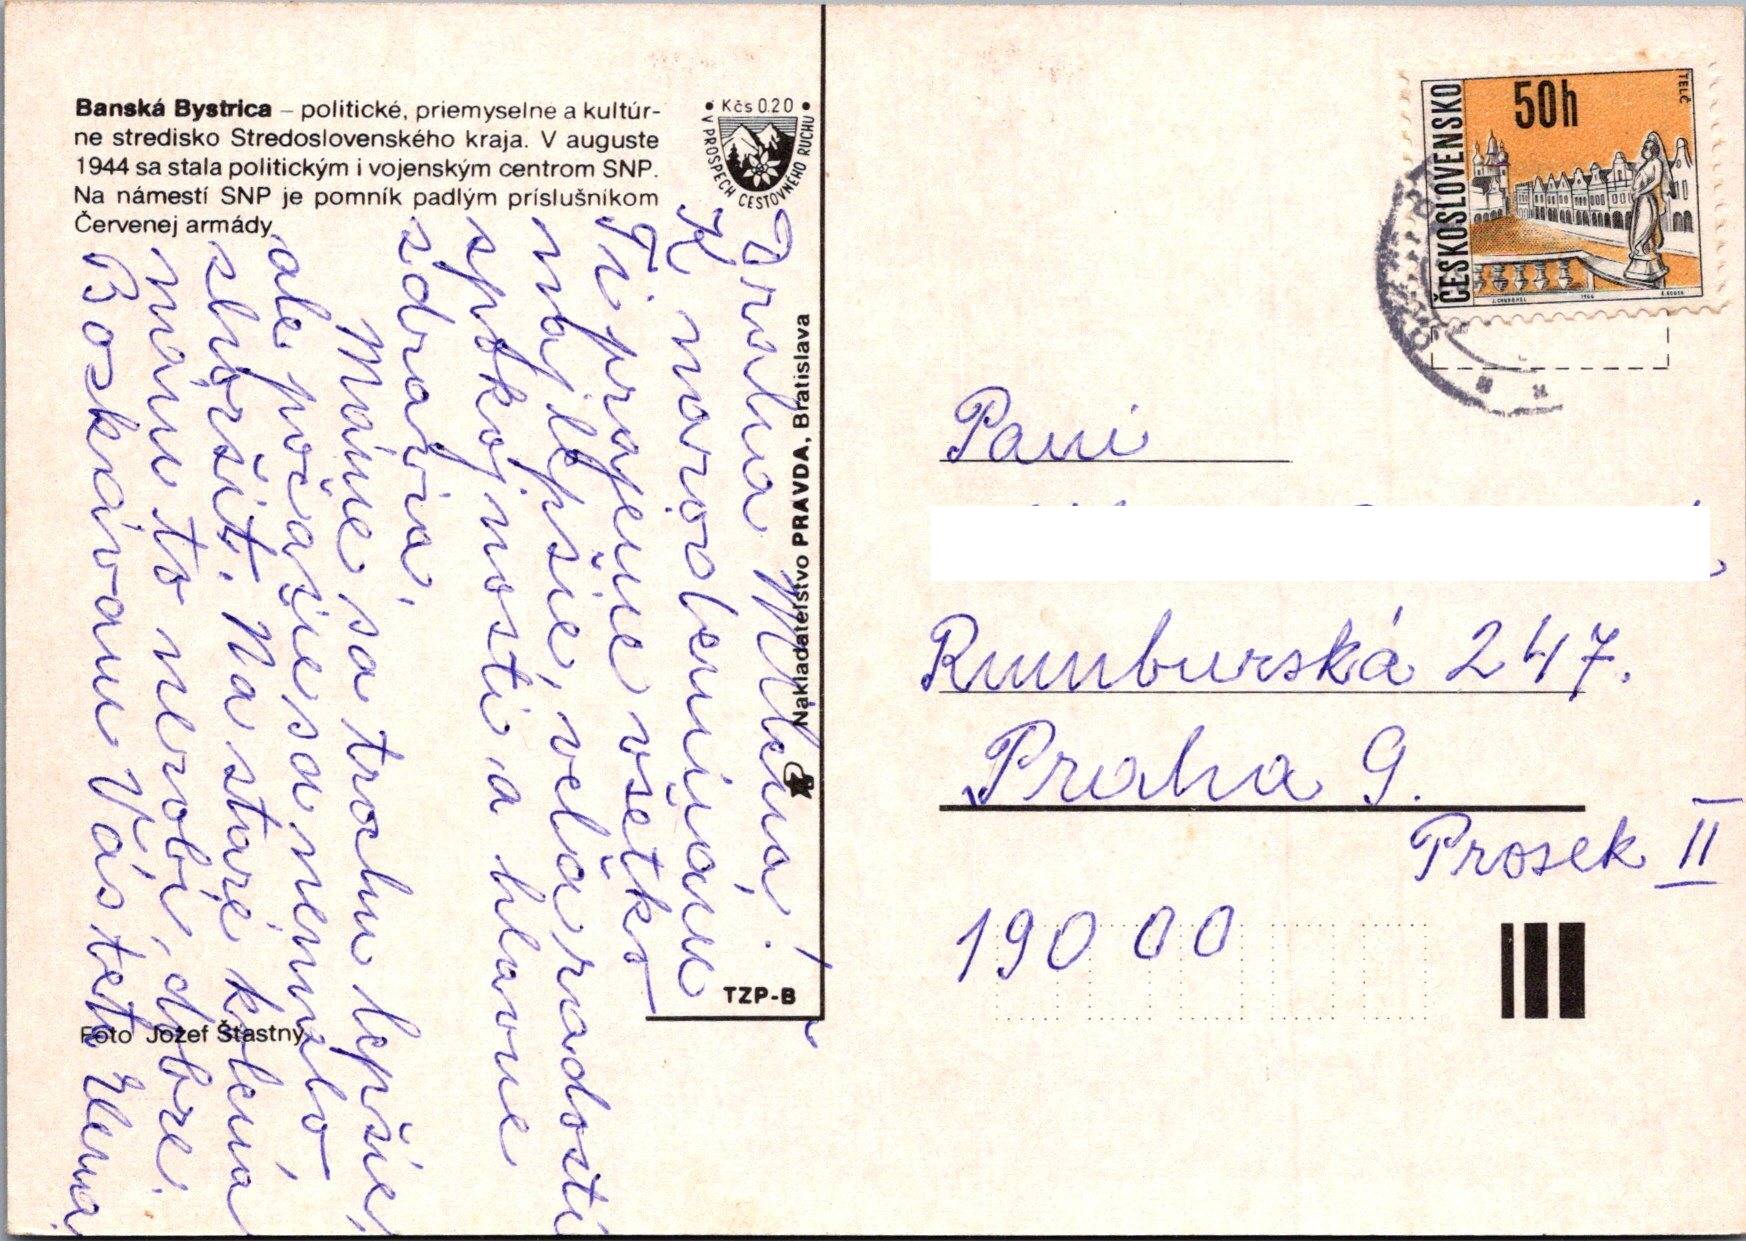 Banská Bystrica – politické, priemyselné a kultúr-
ne stredisko Stredoslovenského kraja. V auguste
1944 sa stala politickým i vojenským centrom SNP.
Na námestí SNP je pomník padlým príslušníkom
Červenej armády.
• Kčs 0.20 •
V PROSPECH CESTOVNÉHO RUCHU
Drahá Milena!
K narozeninám
Ti prajeme všetko
najlepšie, veľa radosti
spokojnosti a hlavne
zdravia.
Máme sa trochu lepšie,
ale počasie sa nemuselo
zhoršit. Na staré kolená
nám to nerobí dobre.
Boskávam Vás teta Elena
Nakladateľstvo PRAVDA, Bratislava
TZP-B
Foto Jozef Šťastný
ČESKOSLOVENSKO
50h
TELČ
1966
Pani
Rumburská 247.
Praha 9.
Prosek II
190 00